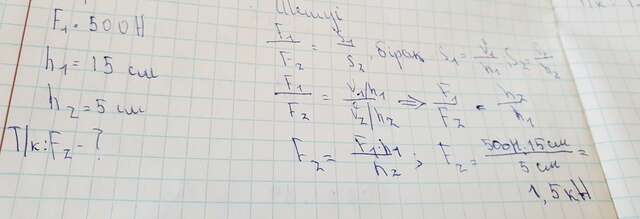 F₁ = 500Н
h₁ = 15 см
h₂ = 5 см
Т/к: F₂ - ?
Шешуі
F₁/F₂ = S₁/S₂, бірақ S₁ = V₁/h₁, S₂ = V₂/h₂
F₁/F₂ = V₁/h₁ / V₂/h₂ ⇒ F₁/F₂ = h₂/h₁
F₂ = F₁·h₁/h₂; F₂ = 500Н·15см/5см =
1,5кН